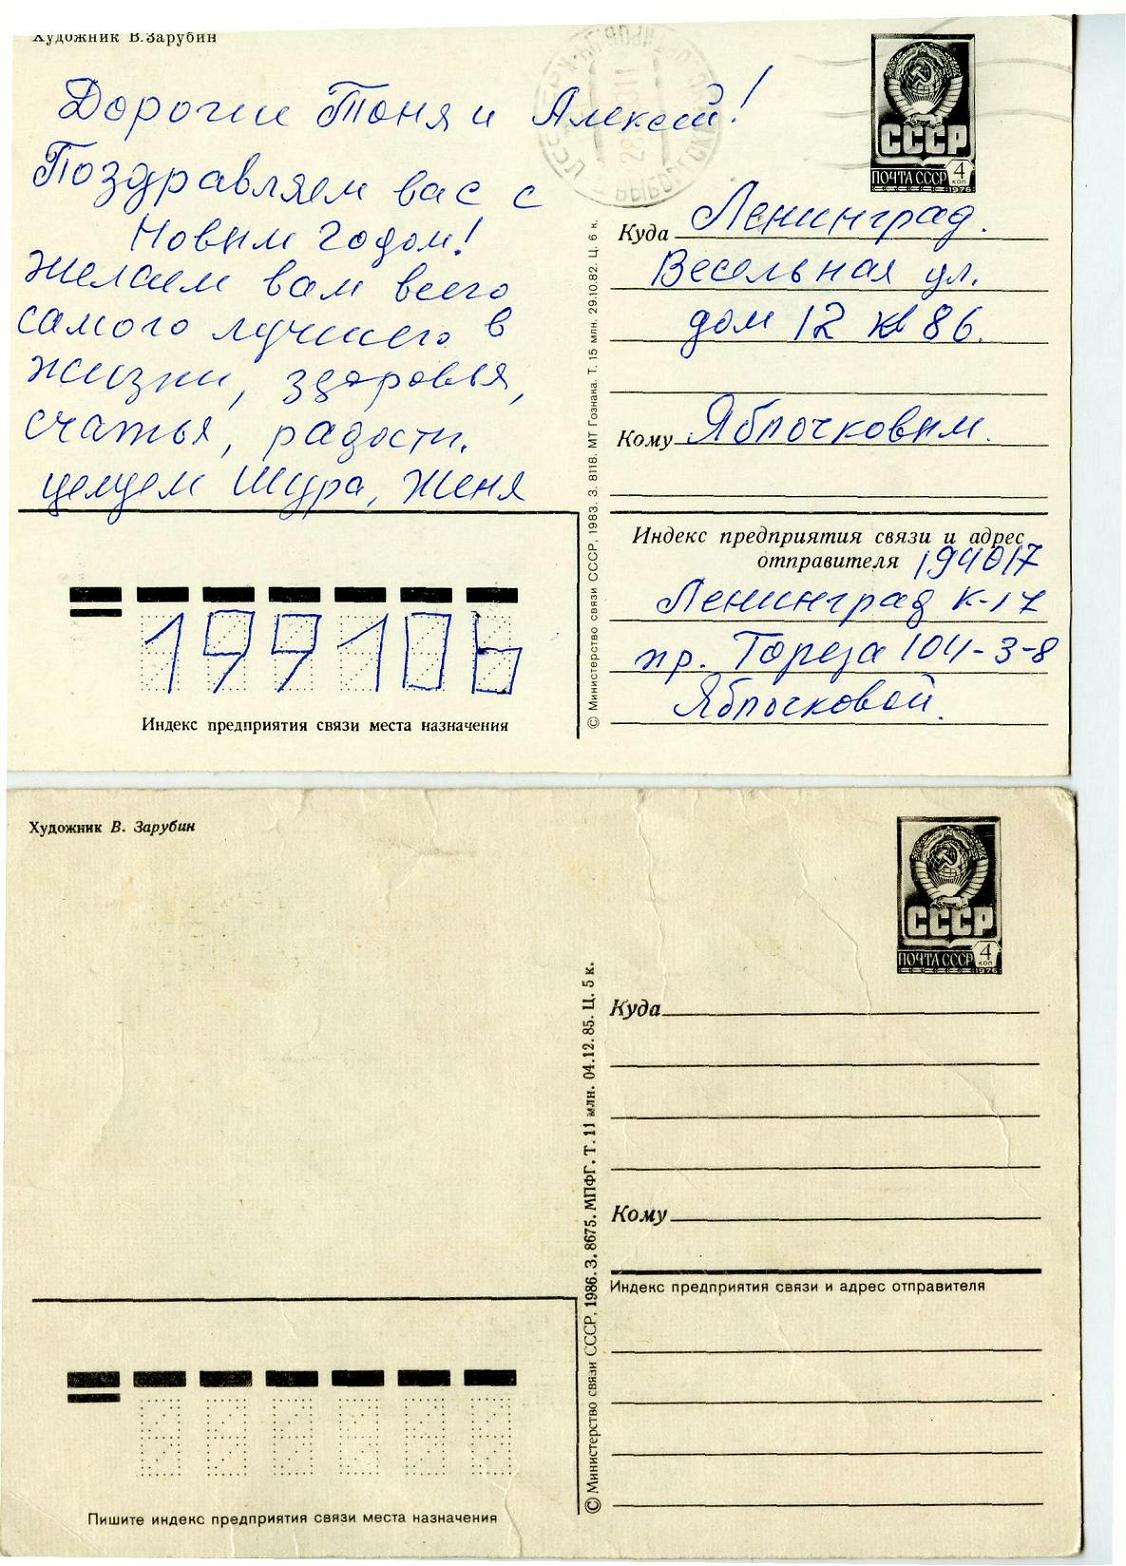 Художник В. Зарубин
Дорогие Тоня и Алексей!
Поздравляем вас с
Новым годом!
Желаем вам всего
самого лучшего в
жизни, здоровья,
счастья, радости.
целуем Шура, Женя
199106
Индекс предприятия связи места назначения
© Министерство связи СССР, 1983. З. 8118. МТ Гознака. Т. 15 млн. 29.10.82. Ц. 6 к.
СССР
ПОЧТА СССР 4 коп
1976
Куда Ленинград.
Весельная ул.
дом 12 кв 86.
Кому Яблочковым.
Индекс предприятия связи и адрес
отправителя 194017
Ленинград К-17
пр. Тореза 104-3-8
Яблочковой.
Художник В. Зарубин
СССР
ПОЧТА СССР 4 коп
1976
Куда
Кому
Индекс предприятия связи и адрес отправителя
© Министерство связи СССР, 1986. З. 8675. МПФГ. Т. 11 млн. 04.12.85. Ц. 5 к.
Пишите индекс предприятия связи места назначения